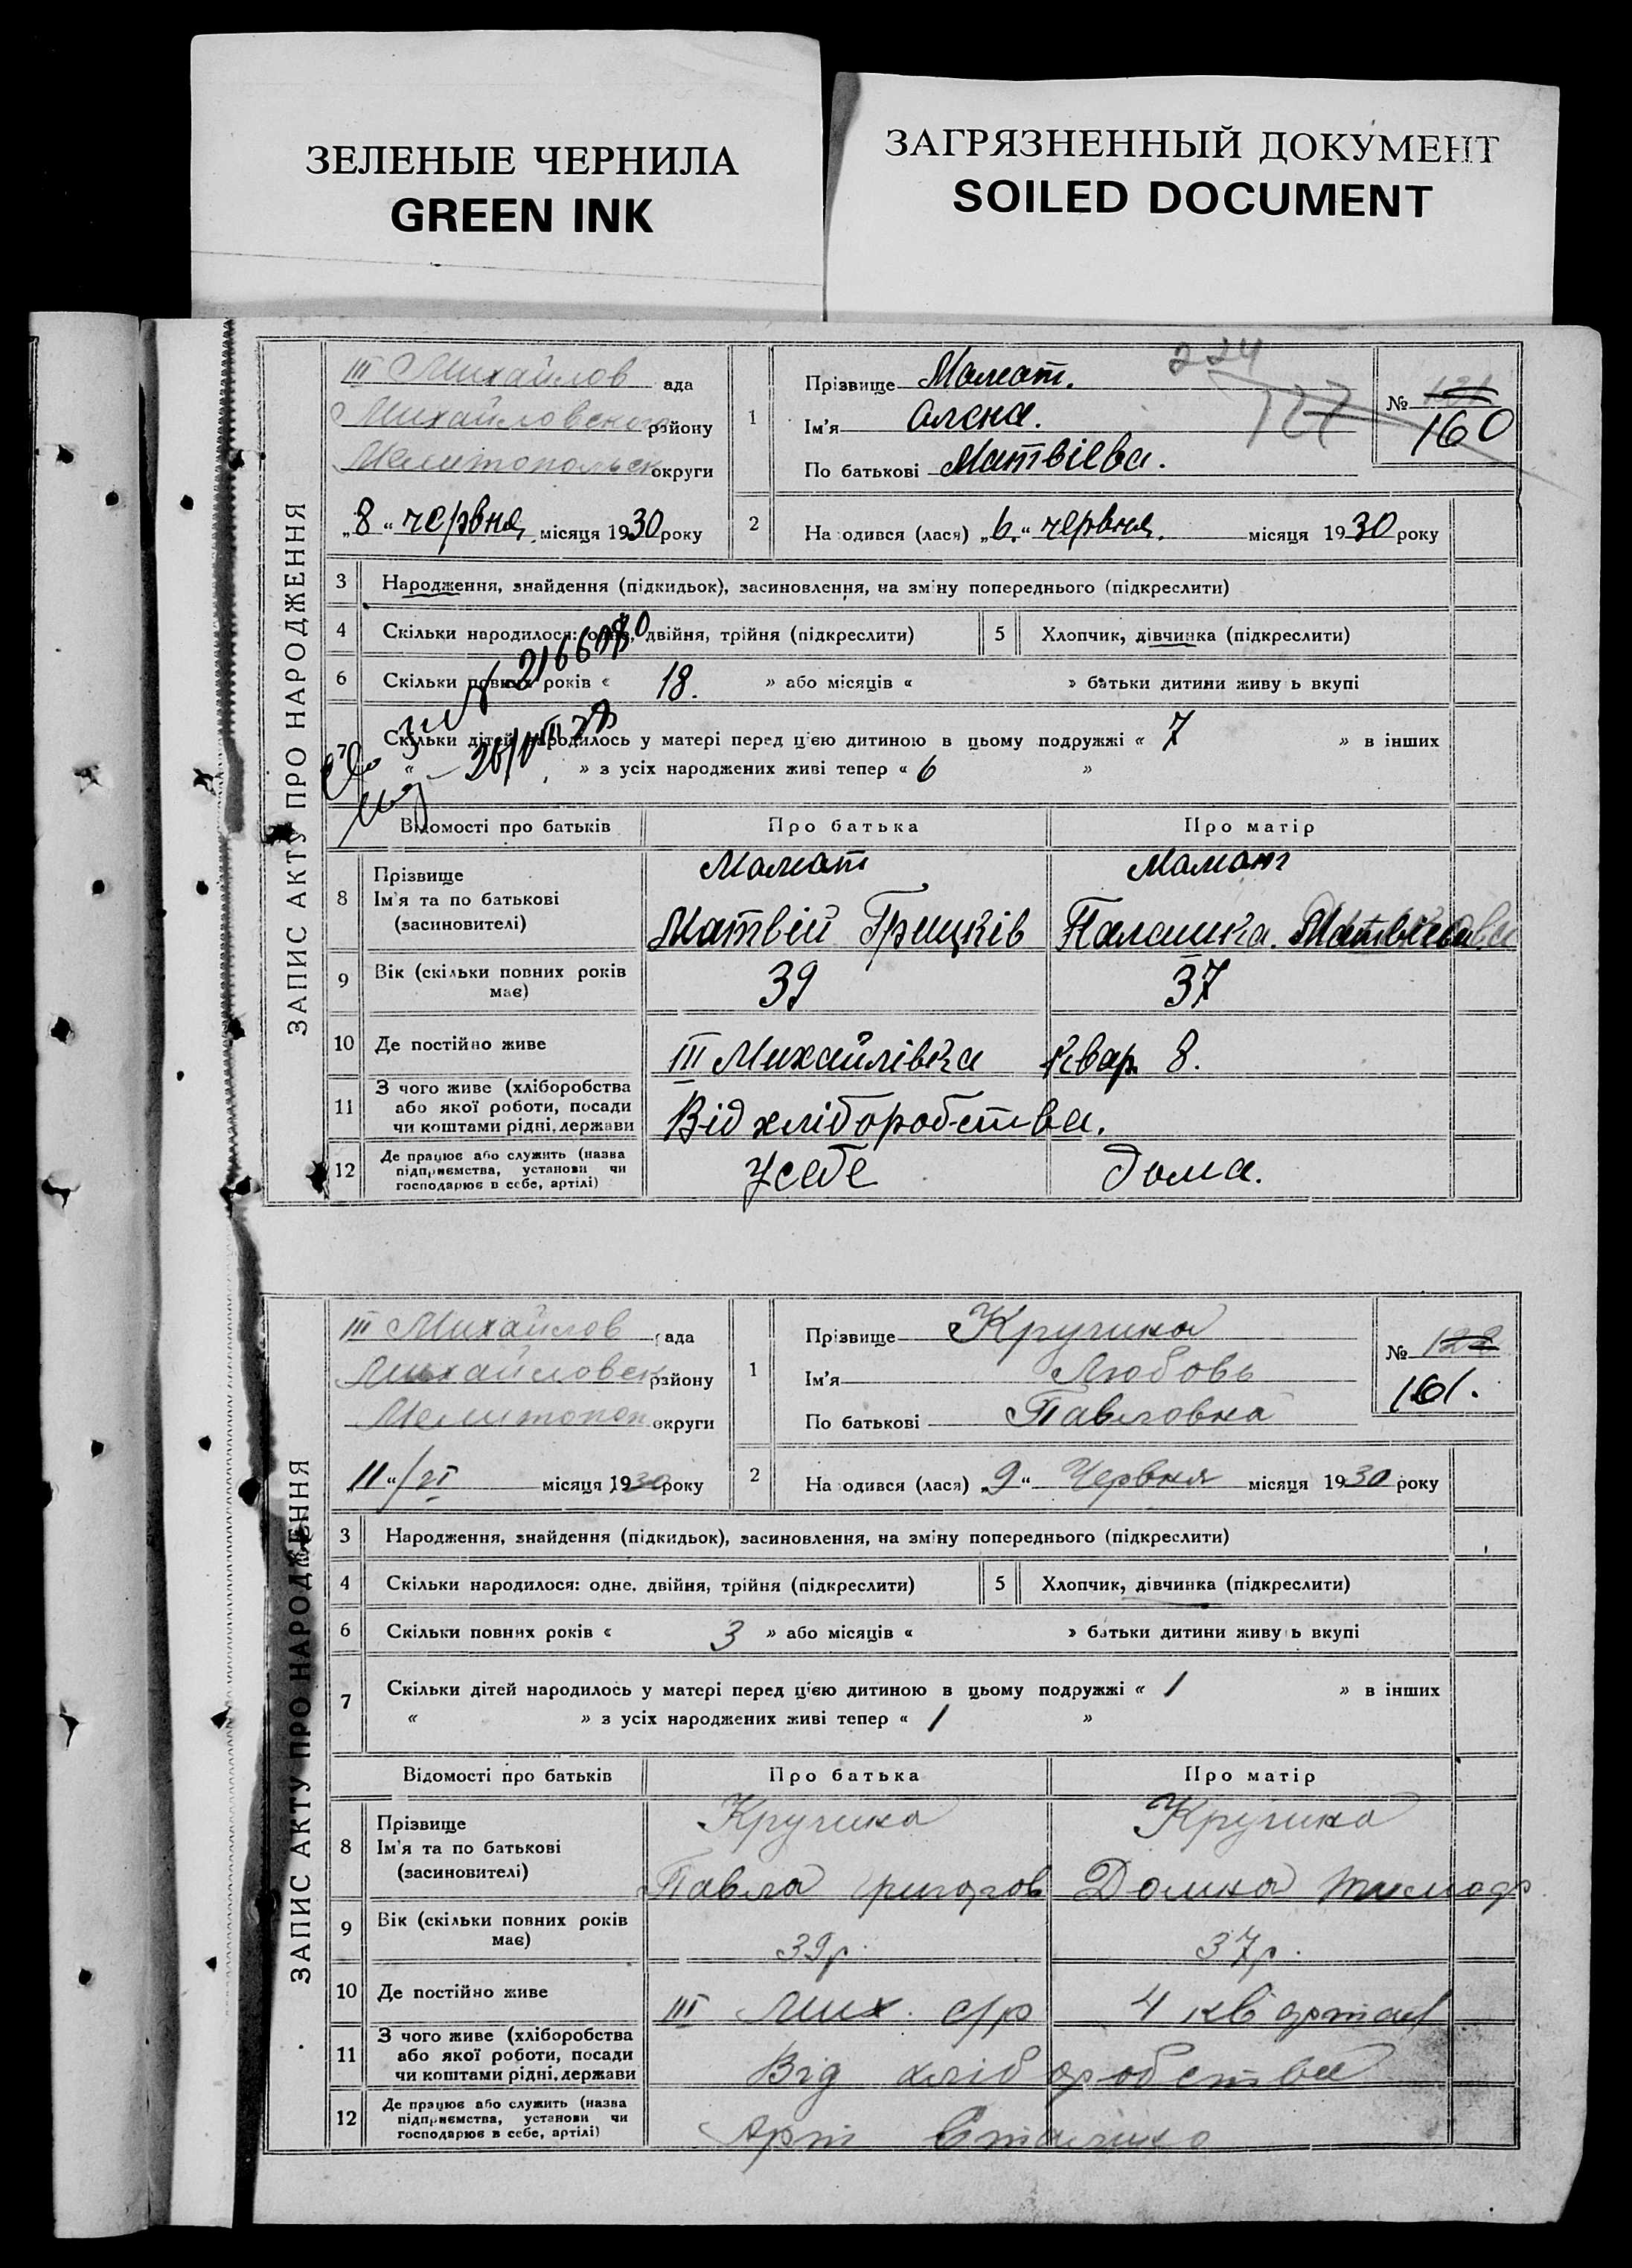 ЗЕЛЕНЫЕ ЧЕРНИЛА
GREEN INK
ЗАГРЯЗНЕННЫЙ ДОКУМЕНТ
SOILED DOCUMENT
ЗАПИС АКТУ ПРО НАРОДЖЕННЯ
III Михайлов ада
Михайловского району
Мелитопольск округи
„8“ червня місяця 1930 року
1
Прізвище
Ім'я Олена.
По батькові Матвієва.
224
127
№ 121
160
2 На одився (лася) „6.“ червня. місяця 1930 року
3 Народження, знайдення (підкидьок), засиновлення, на зміну попереднього (підкреслити)
4 Скільки народилося: одне, двійня, трійня (підкреслити)
5 Хлопчик, дівчинка (підкреслити)
6 Скільки повних років « 18. » або місяців « » батьки дитини живу ь вкупі
7 Скільки дітей народилось у матері перед цією дитиною в цьому подружжі « 7 » в інших
« » з усіх народжених живі тепер « 6 »
Відомості про батьків Про батька Про матір
8 Прізвище
Ім'я та по батькові
(засновителі)
Матвій Грицків Палашка.
9 Вік (скільки повних років має) 39 37
10 Де постійно живе III Михайлівка Квар. 8.
11 З чого живе (хліборобства
або якої роботи, посади
чи коштами рідні, держави
Від хліборобства.
12 Де працює або служить (назва
підприємства, установи чи
господарює в себе, артілі)
У себе дома.
ЗАПИС АКТУ ПРО НАРОДЖЕННЯ
III Михайлов ада
Михайловск району
Мелитопол округи
11“/VI місяця 1930 року
1
Прізвище Кручина
Ім'я Любовь
По батькові Павловна
№ 122
161.
2 На одився (лася) „9“ Червня місяця 1930 року
3 Народження, знайдення (підкидьок), засиновлення, на зміну попереднього (підкреслити)
4 Скільки народилося: одне, двійня, трійня (підкреслити)
5 Хлопчик, дівчинка (підкреслити)
6 Скільки повних років « 3 » або місяців « » батьки дитини живу ь вкупі
7 Скільки дітей народилось у матері перед цією дитиною в цьому подружжі « 1 » в інших
« » з усіх народжених живі тепер « 1 »
Відомості про батьків Про батька Про матір
8 Прізвище
Ім'я та по батькові
(засиновителі)
Кручина Кручина
Павло Григоров Домна Тимоф
9 Вік (скільки повних років має) 39 р. 37 р.
10 Де постійно живе III Мих. с/р 4 квартал
11 З чого живе (хліборобства
або якої роботи, посади
чи коштами рідні, держави
Від хліборобства
12 Де працює або служить (назва
підприємства, установи чи
господарює в себе, артілі)
Арт